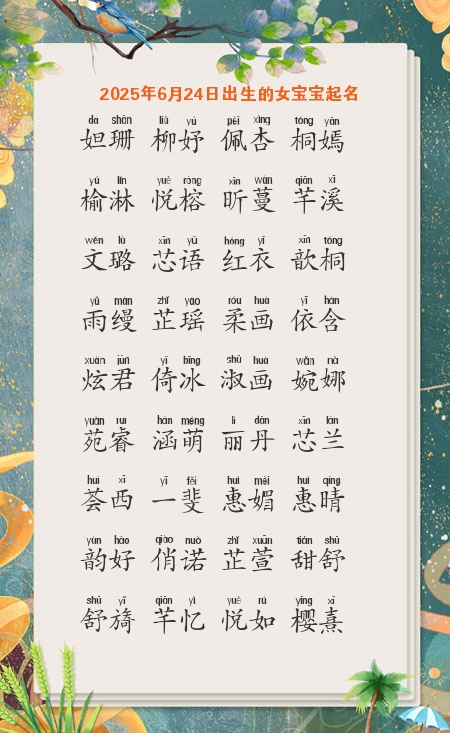 2025年6月24日出生的女宝宝起名
da shān liǔ yú pèi xìng tóng yān
妲珊 柳妤 佩杏 桐嫣
yú lín yuè róng xīn wàn qiān xī
榆淋 悦榕 昕蔓 芊溪
wén lù xīn yǔ hóng yī xīn tóng
文璐 芯语 红衣 歆桐
yǔ màn zhǐ yáo róu huà yī hán
雨缦 芷瑶 柔画 依含
xuàn jūn yǐ bīng shū huà wǎn nà
炫君 倚冰 淑画 婉娜
yuàn ruì hán méng lì dān xīn lán
苑睿 涵萌 丽丹 芯兰
huì xī yī fěi huì mèi huì qíng
荟西 一斐 惠媚 惠晴
yùn hǎo qiào nuò zhǐ xuān tián shū
韵好 俏诺 芷萱 甜舒
shū yǐ qiān yì yuè rú yīng xī
舒旖 芊忆 悦如 樱熹